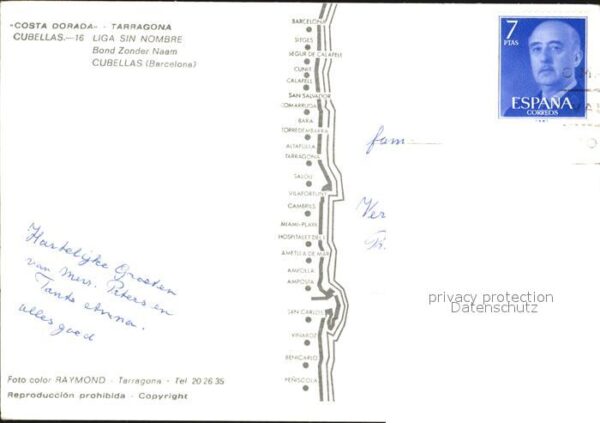 "COSTA DORADA" - TARRAGONA
CUBELLAS.—16 LIGA SIN NOMBRE
Bond Zonder Naam
CUBELLAS (Barcelona)
BARCELONA
SITGES
SEGUR DE CALAFELL
CUNIT
CALAFELL
SAN SALVADOR
COMARRUGA
BARA
TORREDEMBARRA
ALTAFULLA
TARRAGONA
SALOU
VILAFORTUNY
CAMBRILS
MIAMI-PLAYA
HOSPITALET DEL
AMETLLA DE MAR
AMPOLLA
AMPOSTA
SAN CARLOS
VINAROZ
BENICARLO
PEÑISCOLA
7
PTAS
ESPAÑA
CORREOS
fam
Ver
Hartelijke Groeten
van Mevr. Peters en
Tante
alles goed
privacy protection
Datenschutz
Foto color RAYMOND - Tarragona - Tel 20 26 35
Reproducción prohibida - Copyright